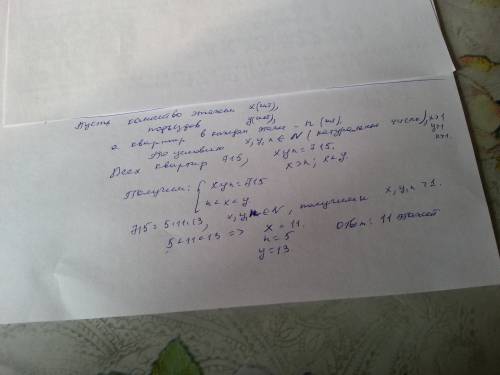 Пусть количество этажей x (шт),
подъездов y (шт),
а квартир в каждом этаже - n (шт).
По условию x, y, n ∈ N (натуральные числа), x>1
y>1
n>1.
Всех квартир 715, xyn = 715.
x>n; x<y.
Получим: { xyn = 715
n < x < y
715 = 5·11·13, x, y, n ∈ N, получили x, y, n > 1.
5 < 11 < 13 => x = 11. Ответ: 11 этажей
n = 5
y = 13